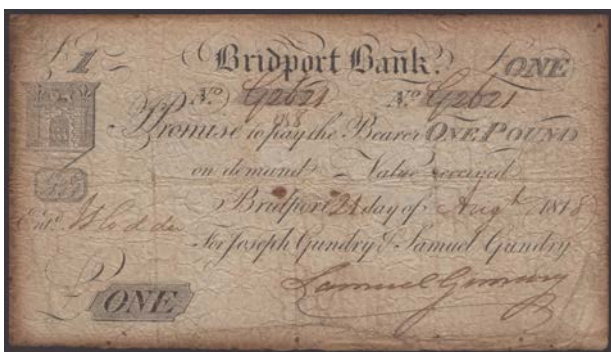 £1 Bridport Bank. £ONE
No. G2621 No. G2621
Promise to pay the Bearer ONE POUND
on demand Value received
Bridport 21 day of Augt. 1818
Entd.
For Joseph Gundry & Samuel Gundry
Samuel Gundry
£ONE